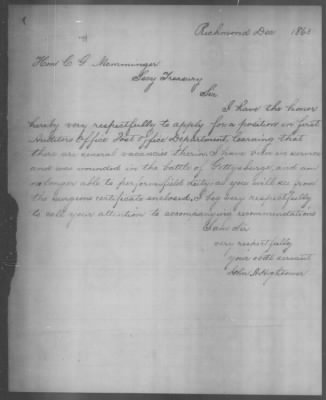 Richmond Dec 186
Hon C G Memminger
Secy Treasury
Sir
I have the honor
hereby very respectfully to apply for a position in first
Auditors Office Post Office Department, learning that
there are several vacancies therein. I have been in service
and was wounded in the battle of Gettysburg, and am
no longer able to perform field duty as you will see from
the surgeons certificate enclosed. I beg very respectfully
to call your attention to accompanying recommendations
I am Sir
very respectfully
your obdt servant
John Hightower